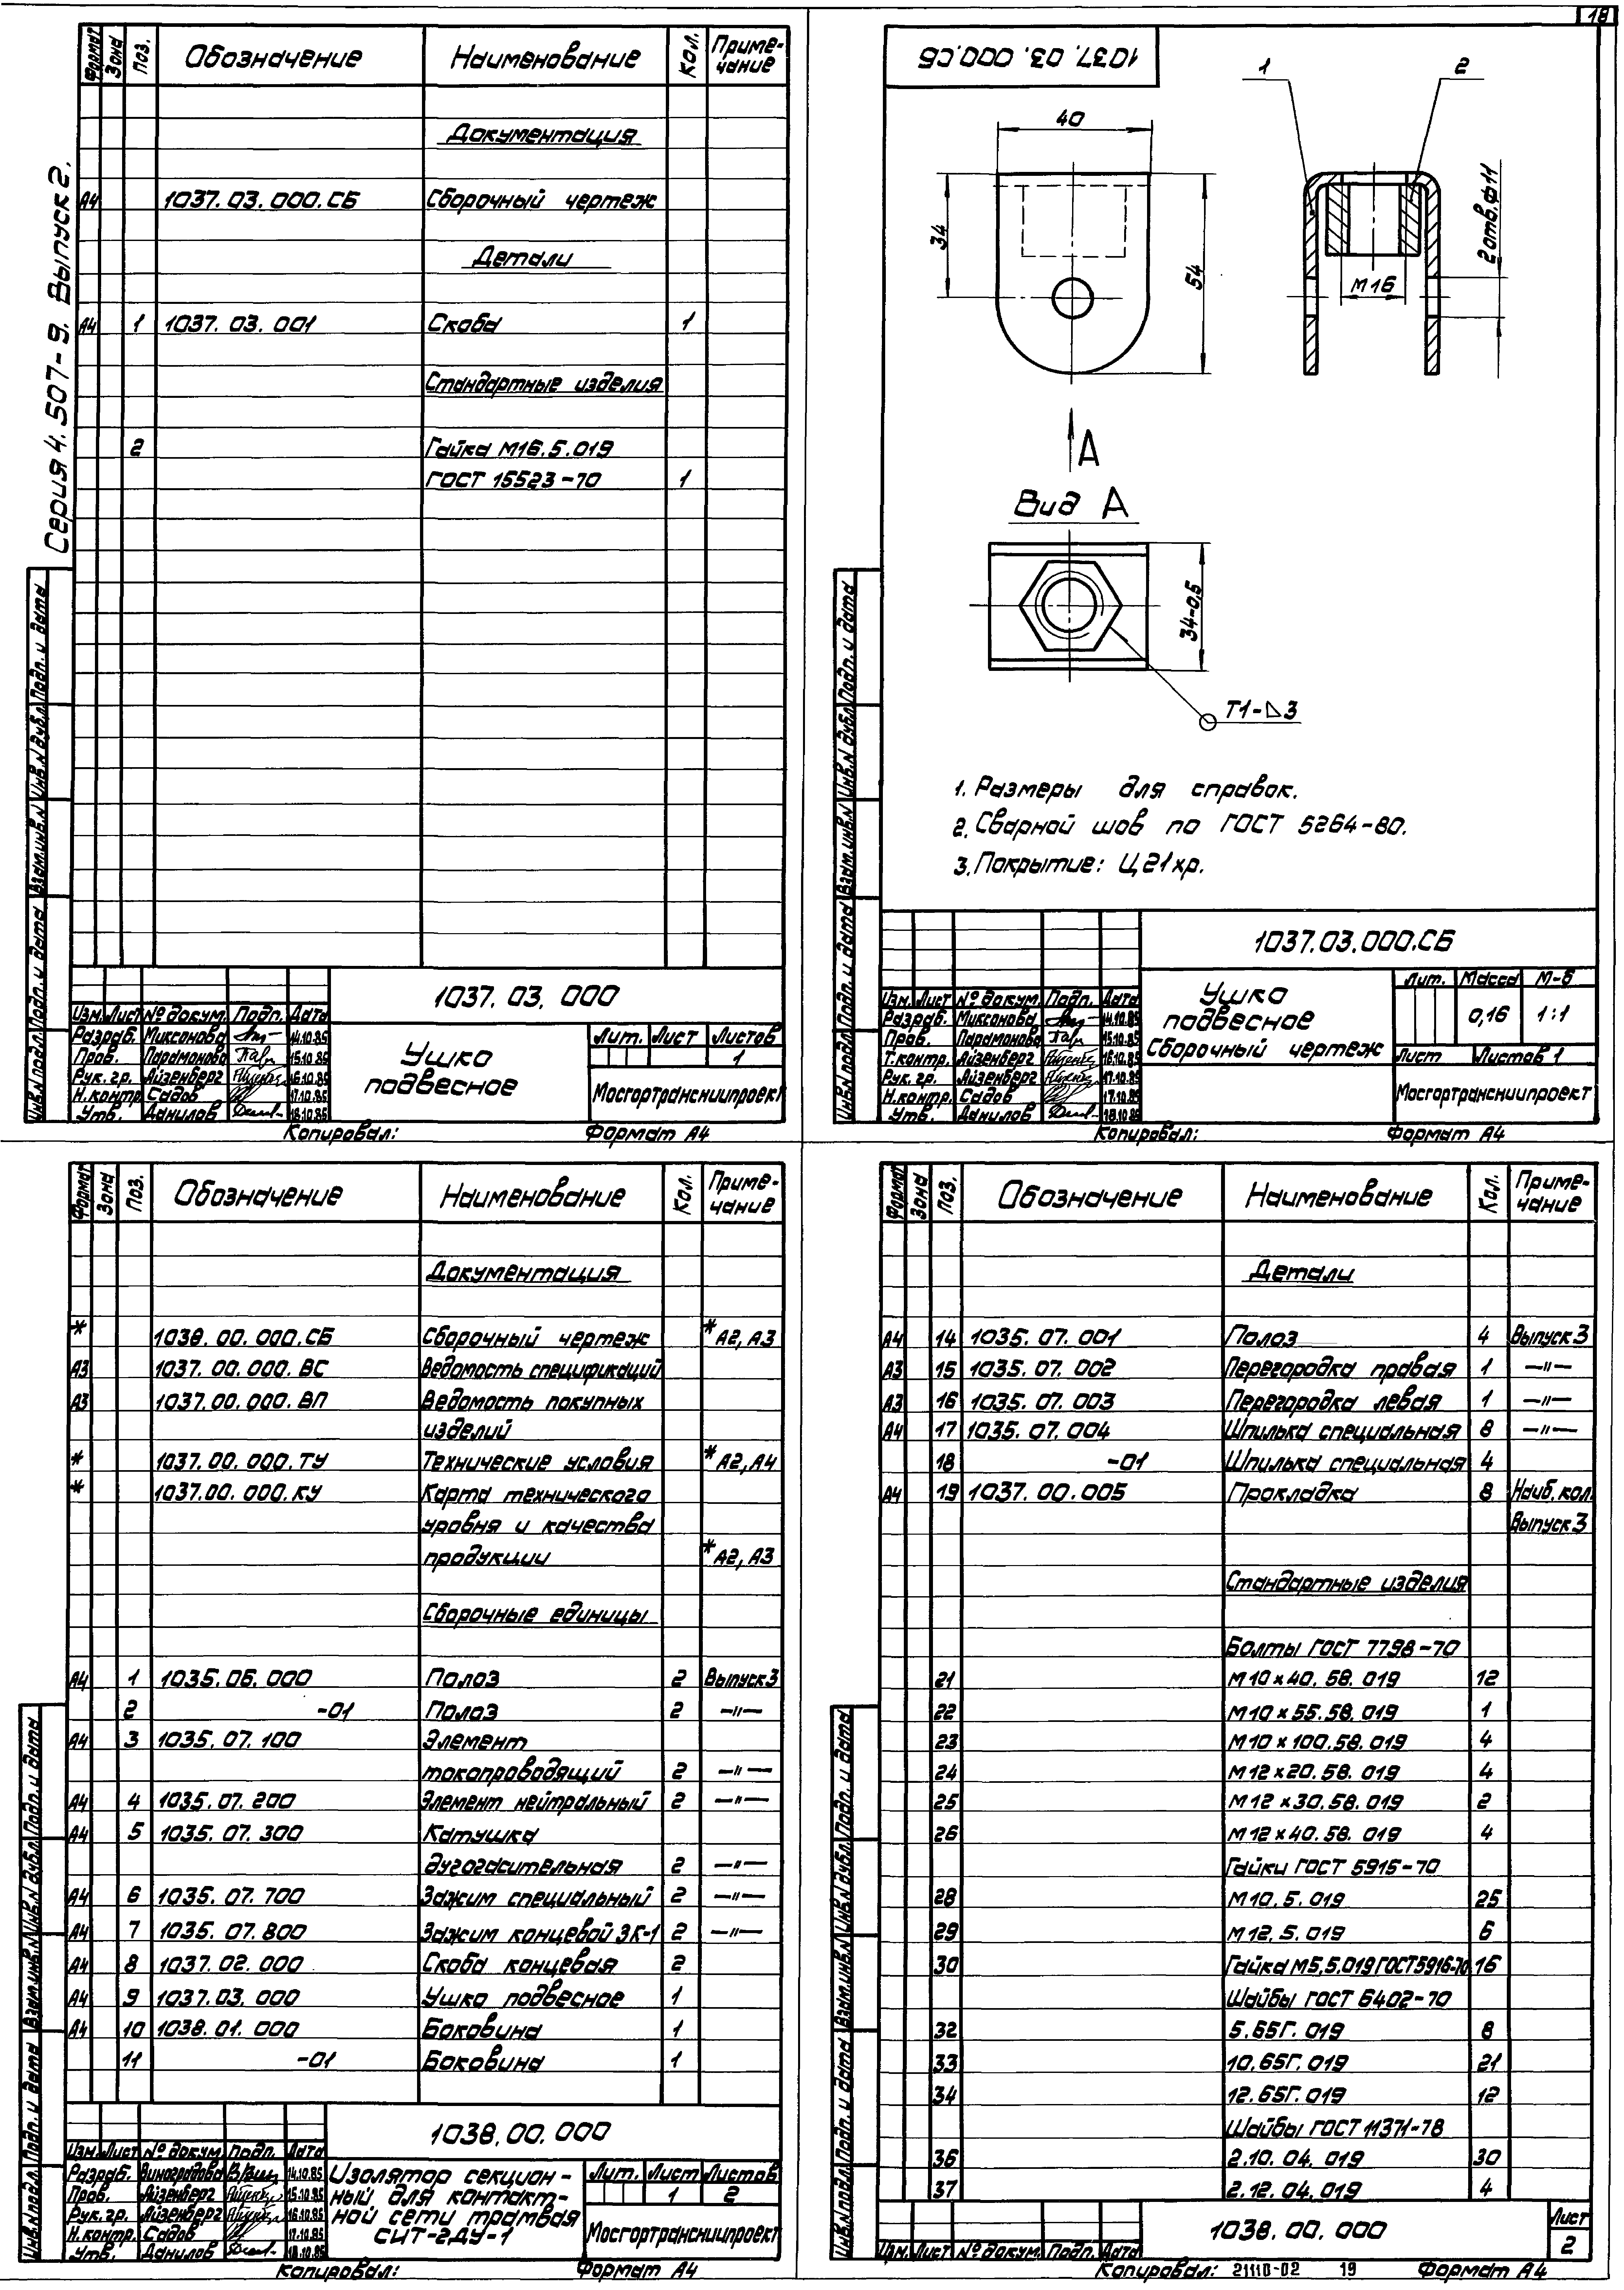 18
Серия 4.507-9. Выпуск 2.
Формат Зона Поз. Обозначение Наименование Кол. Приме-
чание
Документация
А4 1037.03.000.СБ Сборочный чертеж
Детали
А4 1 1037.03.001 Скоба 1
Стандартные изделия
2 Гайка М16.5.019
ГОСТ 15523-70 1
Инв.N подл. Подп. и дата Взам.инв.N Инв.N дубл. Подп. и дата
1037.03.000
Изм. Лист № докум. Подп. Дата
Разраб. Миксонова 14.10.85
Пров. Парамонова 15.10.85
Рук. гр. Айзенберг 16.10.85
Н.контр. Садов 17.10.85
Утв. Данилов 18.10.85
Ушко
подвесное
Лит. Лист Листов
1
Мосгортрансниипроект
Копировал: Формат А4
1037.03.000.СБ
1 2
40
34
54
М16
2отв.ф11
А
Вид А
34-0,5
Т1-⊿3
1. Размеры для справок.
2. Сварной шов по ГОСТ 5264-80.
3. Покрытие: Ц21хр.
Инв.N подл. Подп. и дата Взам.инв.N Инв.N дубл. Подп. и дата
1037.03.000.СБ
Изм. Лист № докум. Подп. Дата
Разраб. Миксонова 14.10.85
Пров. Парамонова 15.10.85
Т.контр. Айзенберг 16.10.85
Рук. гр. Айзенберг 17.10.85
Н.контр. Садов 17.10.85
Утв. Данилов 18.10.85
Ушко
подвесное
Сборочный чертеж
Лит. Масса М-б
0,16 1:1
Лист Листов 1
Мосгортрансниипроект
Копировал: Формат А4
Формат Зона Поз. Обозначение Наименование Кол. Приме-
чание
Документация
* 1038.00.000.СБ Сборочный чертеж *А2, А3
А3 1037.00.000.ВС Ведомость спецификаций
А3 1037.00.000.ВП Ведомость покупных
изделий
* 1037.00.000.ТУ Технические условия *А2, А4
* 1037.00.000.КУ Карта технического
уровня и качества
продукции *А2, А3
Сборочные единицы
А4 1 1035.06.000 Полоз 2 Выпуск 3
2 -01 Полоз 2 —"—
А4 3 1035.07.100 Элемент
токопроводящий 2 —"—
А4 4 1035.07.200 Элемент нейтральный 2 —"—
А4 5 1035.07.300 Катушка
дугогасительная 2 —"—
А4 6 1035.07.700 Зажим специальный 2 —"—
А4 7 1035.07.800 Зажим концевой ЗК-1 2 —"—
А4 8 1037.02.000 Скоба концевая 2
А4 9 1037.03.000 Ушко подвесное 1
А4 10 1038.01.000 Боковина 1
11 -01 Боковина 1
Инв.N подл. Подп. и дата Взам.инв.N Инв.N дубл. Подп. и дата
1038.00.000
Изм. Лист № докум. Подп. Дата
Разраб. Виноградова 14.10.85
Пров. Айзенберг 15.10.85
Рук. гр. Айзенберг 16.10.85
Н.контр. Садов 17.10.85
Утв. Данилов 18.10.85
Изолятор секцион-
ный для контакт-
ной сети трамвая
СИТ-2ДУ-1
Лит. Лист Листов
1 2
Мосгортрансниипроект
Копировал: Формат А4
Формат Зона Поз. Обозначение Наименование Кол. Приме-
чание
Детали
А4 14 1035.07.001 Полоз 4 Выпуск 3
А3 15 1035.07.002 Перегородка правая 1 —"—
А3 16 1035.07.003 Перегородка левая 1 —"—
А4 17 1035.07.004 Шпилька специальная 8 —"—
18 -01 Шпилька специальная 4
А4 19 1037.00.005 Прокладка 8 Наиб. кол.
Выпуск 3
Стандартные изделия
Болты ГОСТ 7798-70
21 М10х40.58.019 12
22 М10х55.58.019 1
23 М10х100.58.019 4
24 М12х20.58.019 4
25 М12х30.58.019 2
26 М12х40.58.019 4
Гайки ГОСТ 5915-70
28 М10.5.019 25
29 М12.5.019 6
30 Гайка М5.5.019 ГОСТ 5916-70 16
Шайбы ГОСТ 6402-70
32 5.65Г.019 8
33 10.65Г.019 21
34 12.65Г.019 12
Шайбы ГОСТ 11371-78
36 2.10.04.019 30
37 2.12.04.019 4
Инв.N подл. Подп. и дата Взам.инв.N Инв.N дубл. Подп. и дата
Изм. Лист № докум. Подп. Дата
1038.00.000
Лист
2
Копировал: 21110-02 19 Формат А4